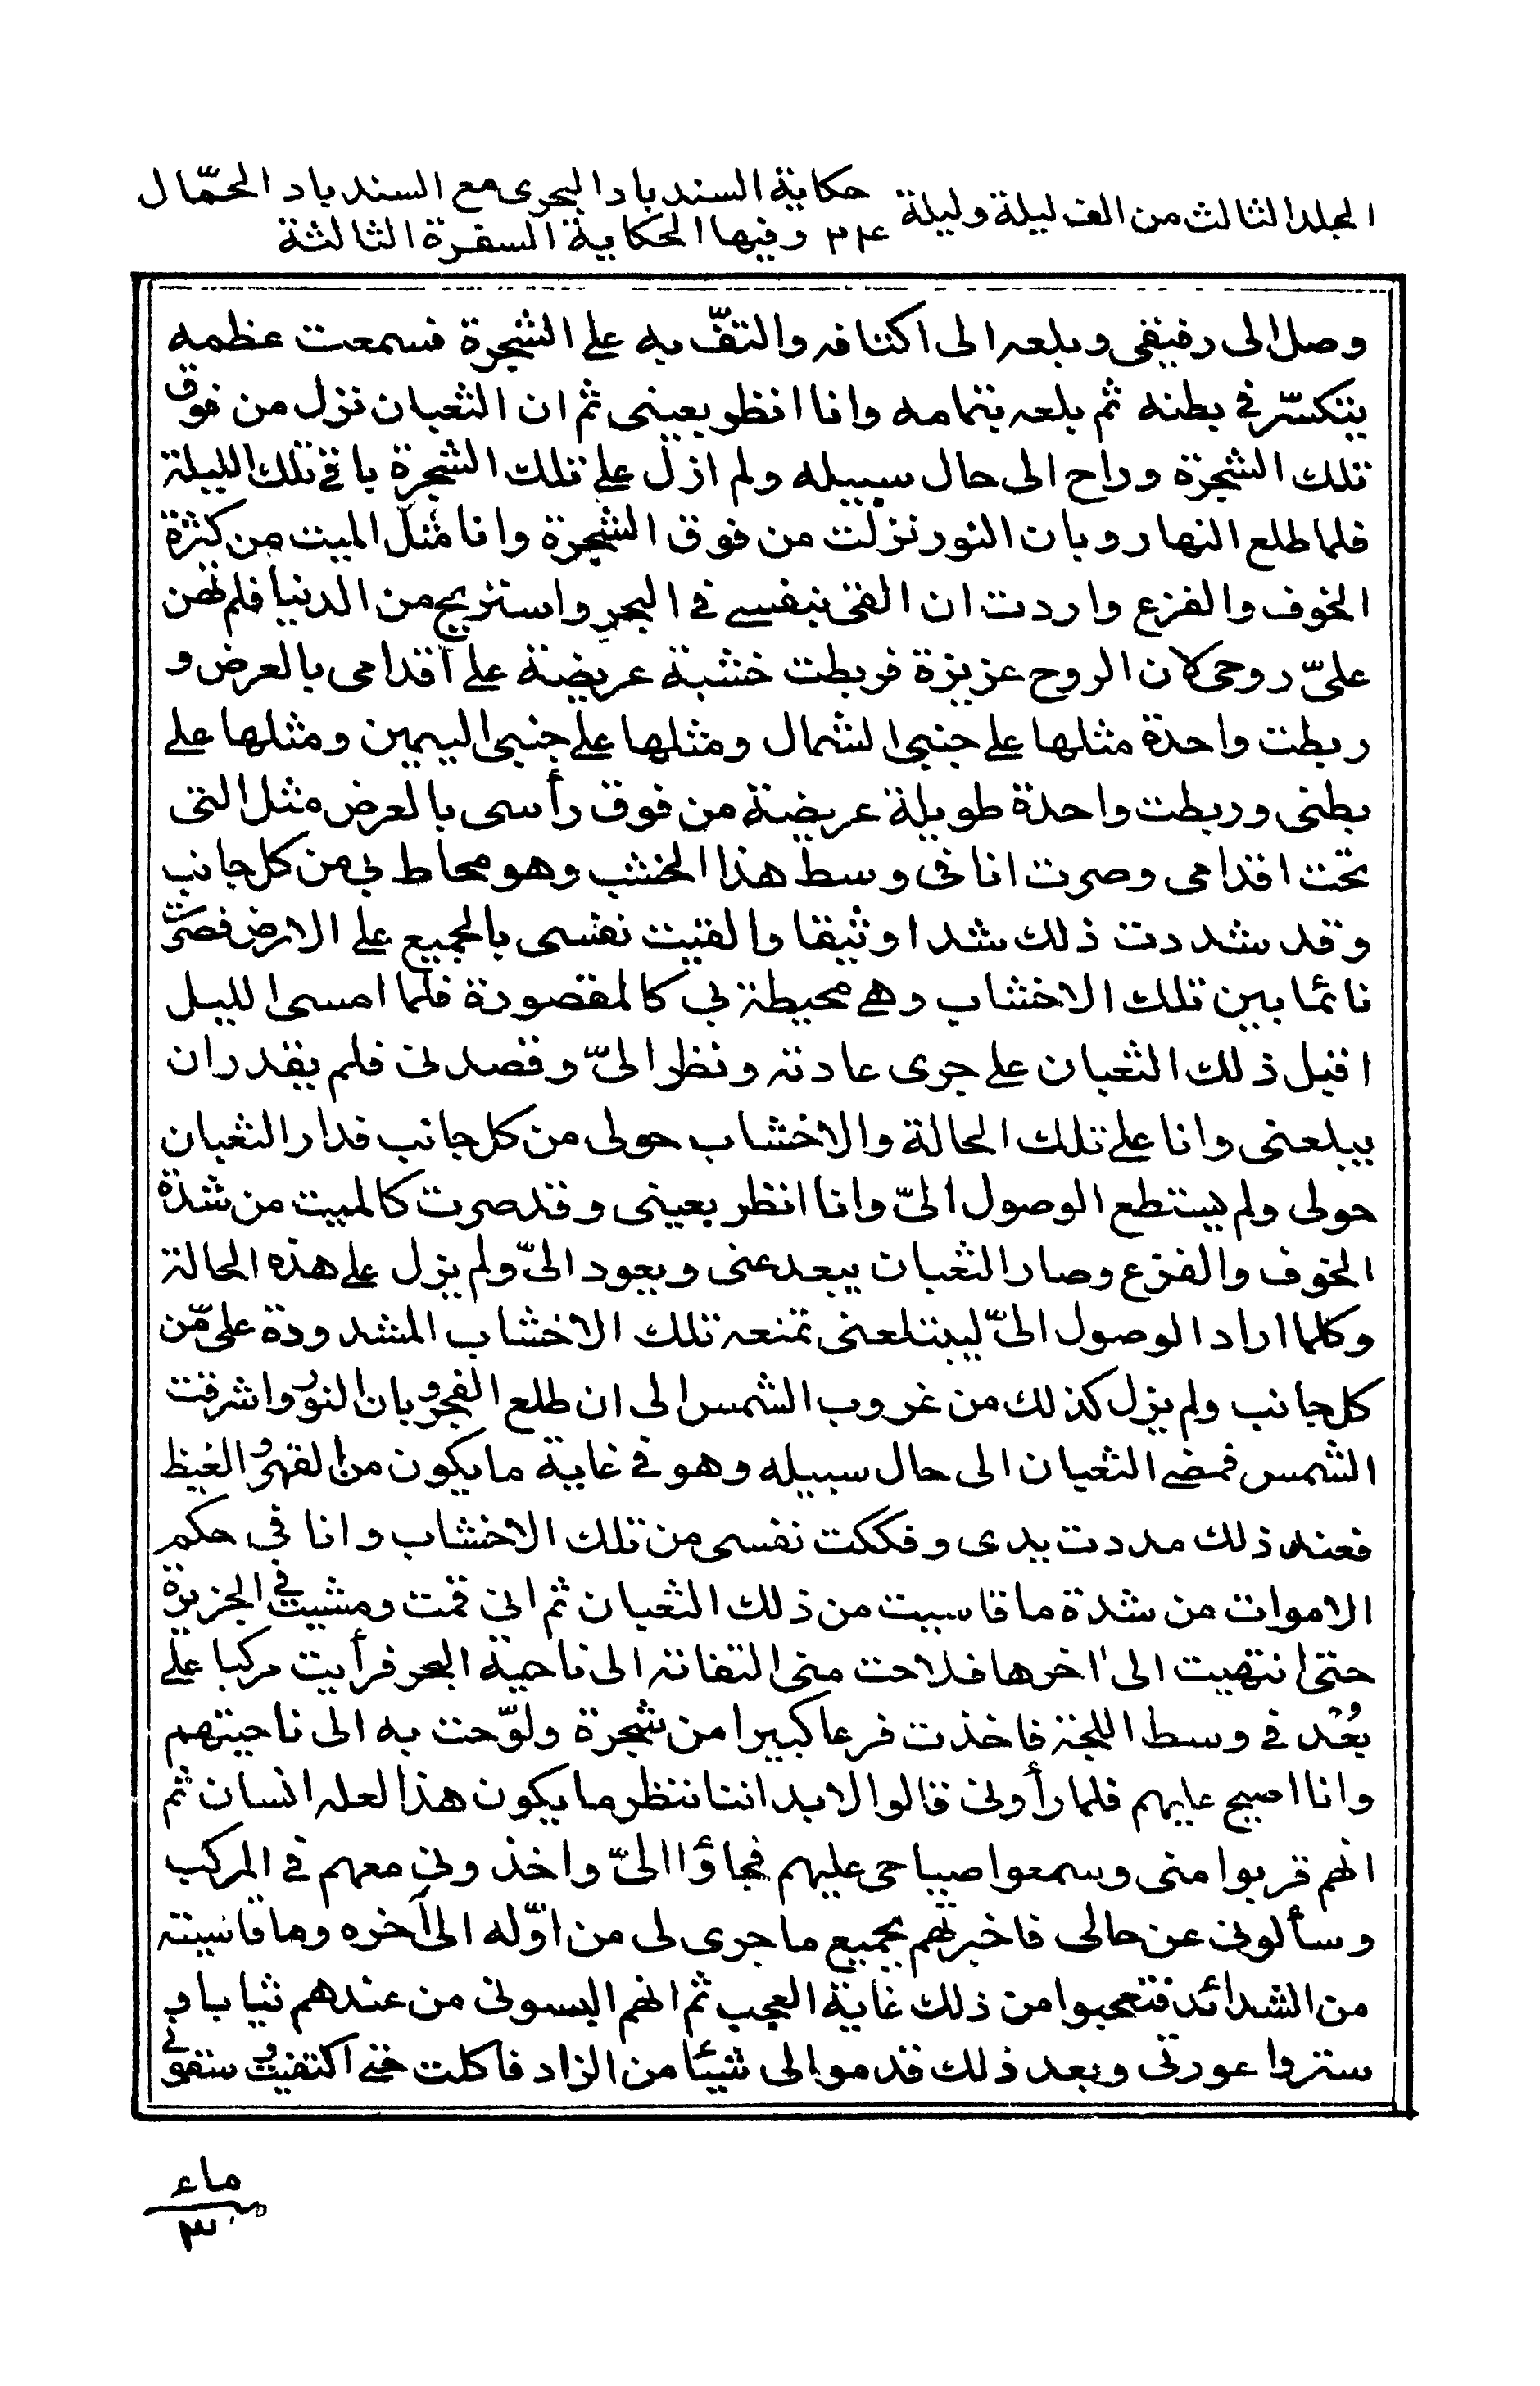 المجلد الثالث من الف ليلة وليلة
حكاية السندباد البحرى مع السندباد الحمّال
٢٤ وفيها الحكاية السفرة الثالثة
وصل الى رفيقى وبلعه الى اكتافه والتفّ به على الشجرة فسمعت عظمه
يتكسّر فى بطنه ثم بلعه بتمامه وانا انظر بعينى ثم ان الثعبان نزل من فوق
تلك الشجرة وراح الى حال سبيله ولم ازل على تلك الشجرة باقى تلك الليلة
فلما طلع النهار وبان النور نزلت من فوق الشجرة وانا مثل الميت من كثرة
الخوف والفزع واردت ان القى بنفسى فى البحر واستريح من الدنيا فلم تهن
علىّ روحى لان الروح عزيزة فربطت خشبة عريضة على اقدامى بالعرض و
ربطت واحدة مثلها على جنبى الشمال ومثلها على جنبى اليمين ومثلها على
بطنى وربطت واحدة طويلة عريضة من فوق رأسى بالعرض مثل التى
تحت اقدامى وصرت انا فى وسط هذا الخشب وهو محاط بى من كل جانب
وقد شددت ذلك شدا وثيقا والقيت نفسى بالجميع على الارض فصرت
نائما بين تلك الاخشاب وهى محيطة بى كالمقصورة فلما امسى الليل
اقبل ذلك الثعبان على جرى عادته ونظر الىّ وقصدنى فلم يقدر ان
يبلعنى وانا على تلك الحالة والاخشاب حولى من كل جانب فدار الثعبان
حولى ولم يستطع الوصول الىّ وانا انظر بعينى وقد صرت كالميت من شدة
الخوف والفزع وصار الثعبان يبعد عنى ويعود الىّ ولم يزل على هذه الحالة
وكلما اراد الوصول الىّ ليبتلعنى تمنعه تلك الاخشاب المشدودة علىّ من
كل جانب ولم يزل كذلك من غروب الشمس الى ان طلع الفجر وبان النور واشرقت
الشمس فمضى الثعبان الى حال سبيله وهو فى غاية ما يكون من القهر والغيظ
فعند ذلك مددت يدى وفككت نفسى من تلك الاخشاب وانا فى حكم
الاموات من شدة ما قاسيت من ذلك الثعبان ثم انى قمت ومشيت فى الجزيرة
حتى انتهيت الى اخرها فلاحت منى التفاتة الى ناحية البحر فرأيت مركبا على
بُعْد فى وسط اللجة فاخذت فرعا كبيرا من شجرة ولوّحت به الى ناحيتهم
وانا اصيح عليهم فلما رأونى قالوا لابد اننا ننظر ما يكون هذا لعله انسان ثم
انهم قربوا منى وسمعوا صياحى عليهم فجاؤا الىّ واخذونى معهم فى المركب
وسألونى عن حالى فاخبرتهم بجميع ما جرى لى من اوّله الى آخره وما قاسيته
من الشدائد فتعجبوا من ذلك غاية العجب ثم انهم البسونى من عندهم ثيابا و
ستروا عورتى وبعد ذلك قدموا لى شيئا من الزاد فاكلت حتى اكتفيت وسقونى
ماء
٣